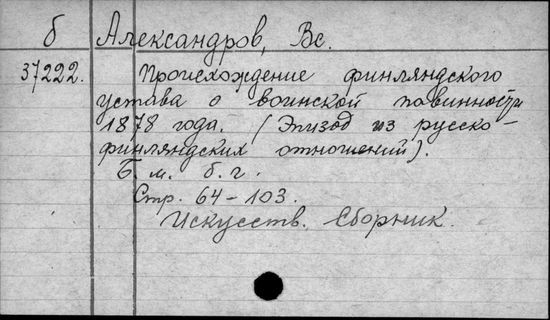 б Александров, Вс.
37222. Происхождение финляндского
устава о воинской повинности
1878 года. (Эпизод из русско-
финляндских отношений).
Б. м. б. г.
Стр. 64-103.
Искусств. Сборник.